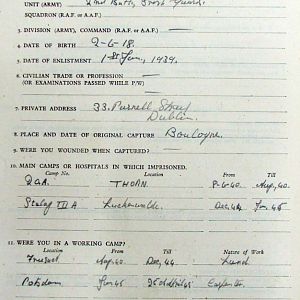 UNIT (ARMY) 2nd Battn Irish Guards.
SQUADRON (R.A.F. or A.A.F.)
3. DIVISION (ARMY), COMMAND (R.A.F. or A.A.F.)
4. DATE OF BIRTH 2-6-18.
5. DATE OF ENLISTMENT 1st Jan, 1939.
6. CIVILIAN TRADE OR PROFESSION
(OR EXAMINATIONS PASSED WHILE P/W)
7. PRIVATE ADDRESS 33. Parnell
Dublin.
8. PLACE AND DATE OF ORIGINAL CAPTURE Boulogne.
9. WERE YOU WOUNDED WHEN CAPTURED?
10. MAIN CAMPS OR HOSPITALS IN WHICH IMPRISONED.
Camp No. Location From Till
THORN 8-6-40. Aug, 40.
Stalag III A Luckenwalde. Dec, 44 Jan, 45
11. WERE YOU IN A WORKING CAMP?
Location From Till Nature of Work
Aug, 40. Dec, 44.
Potsdam Jan 45